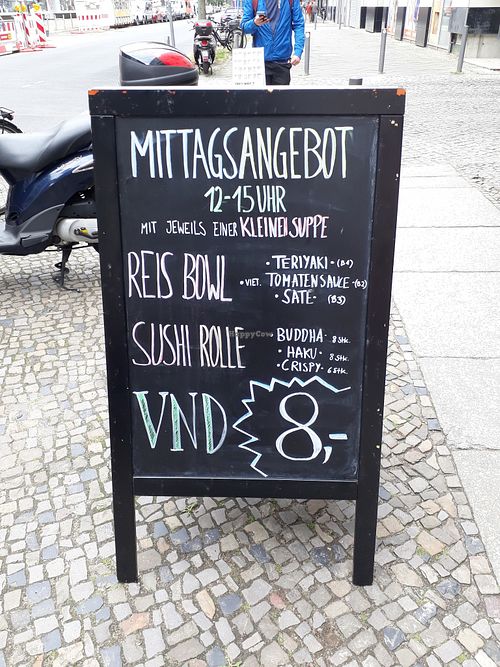 MITTAGSANGEBOT
12-15 UHR
MIT JEWEILS EINER KLEINEN SUPPE
REIS BOWL
• TERIYAKI - (B1)
• VIET. TOMATENSAUCE - (B2)
• SATE - (B3)
SUSHI ROLLE
• BUDDHA - 8 Stk.
• HAKU - 8 Stk.
• CRISPY - 6 Stk.
VND 8,-
HappyCow